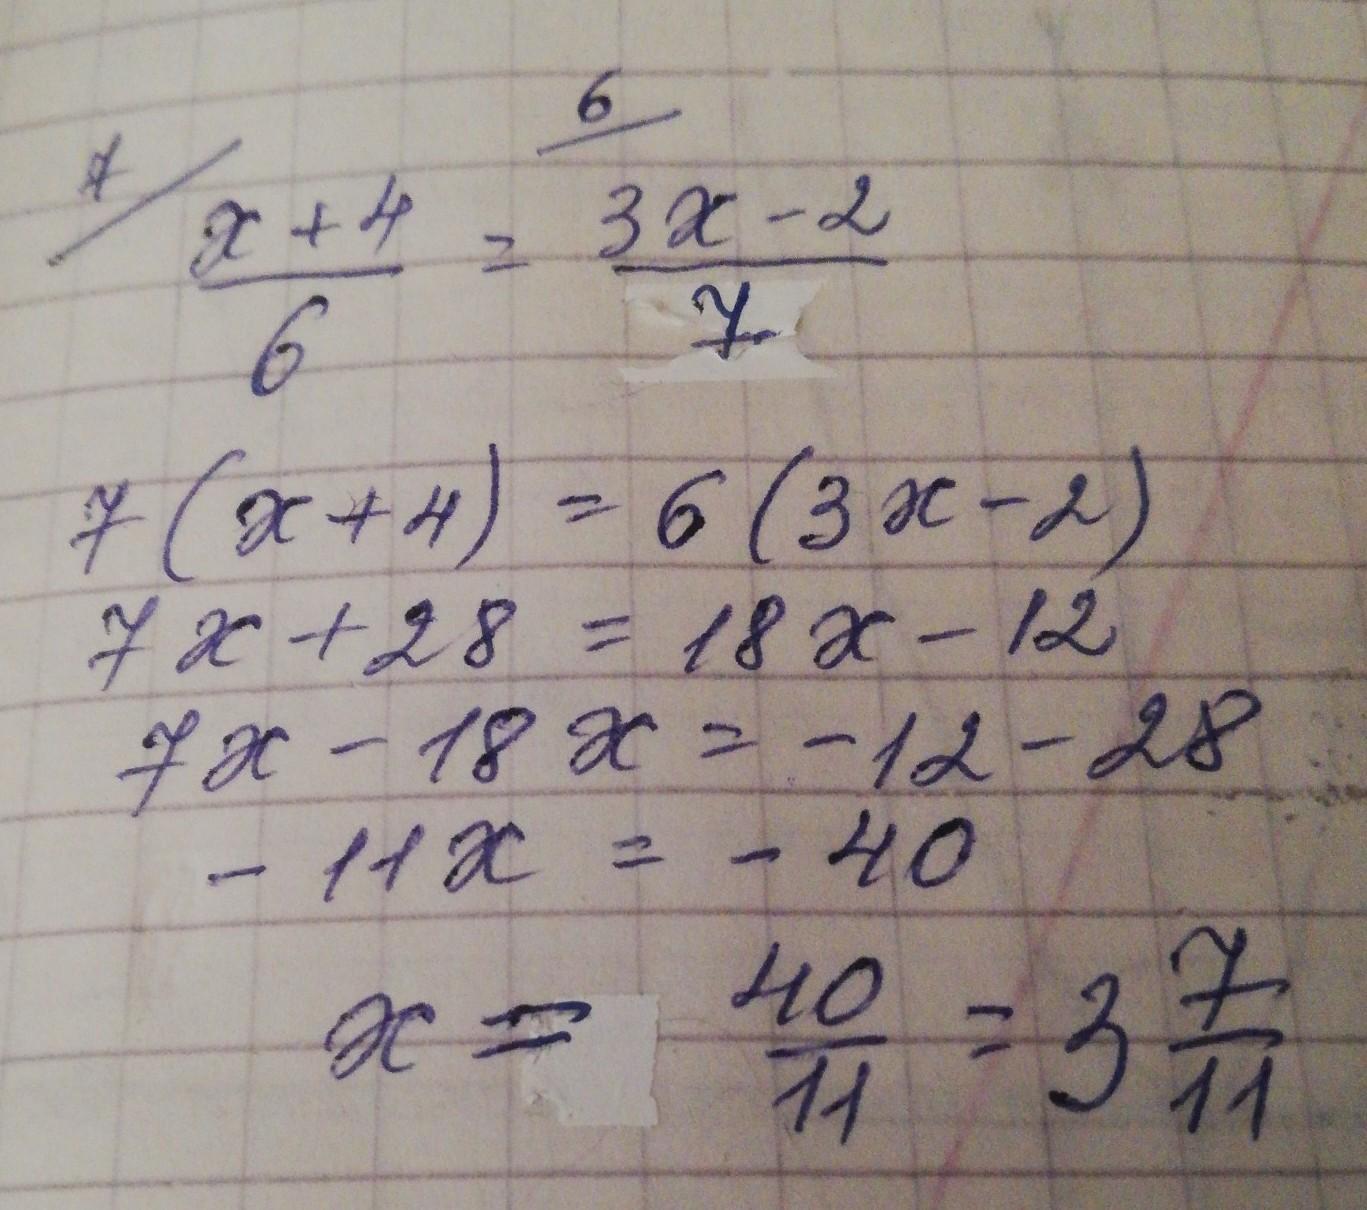 7/ x+4/6 = 6/ 3x-2/7
7(x+4) = 6(3x-2)
7x+28 = 18x-12
7x-18x = -12-28
-11x = -40
x = 40/11 = 3 7/11